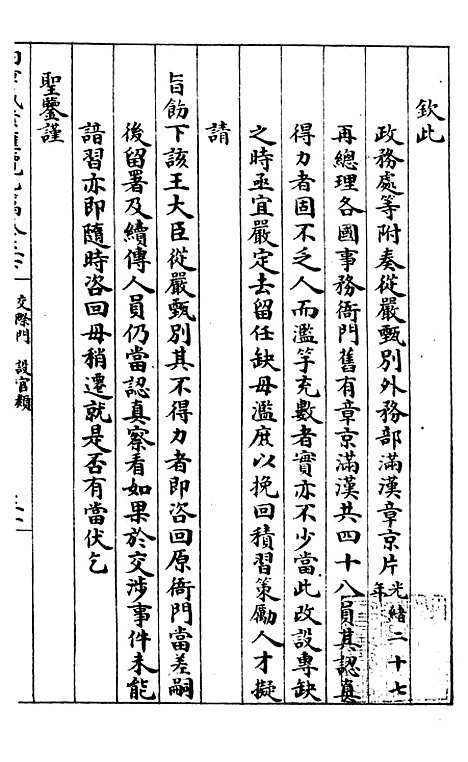 欽此
政務處等附奏從嚴甄別外務部滿漢章京片光緒二十七年
再總理各國事務衙門舊有章京滿漢共四十八員其認真
得力者固不乏人而濫竽充數者實亦不少當此改設專缺
之時亟宜嚴定去留任缺毋濫庶以挽回積習策勵人才擬
請
旨飭下該王大臣從嚴甄別其不得力者即咨回原衙門當差嗣
後留署及續傳人員仍當認真察看如果於交涉事件未能
諳習亦即隨時咨回毋稍遷就是否有當伏乞
聖鑒謹
交際門 設官類